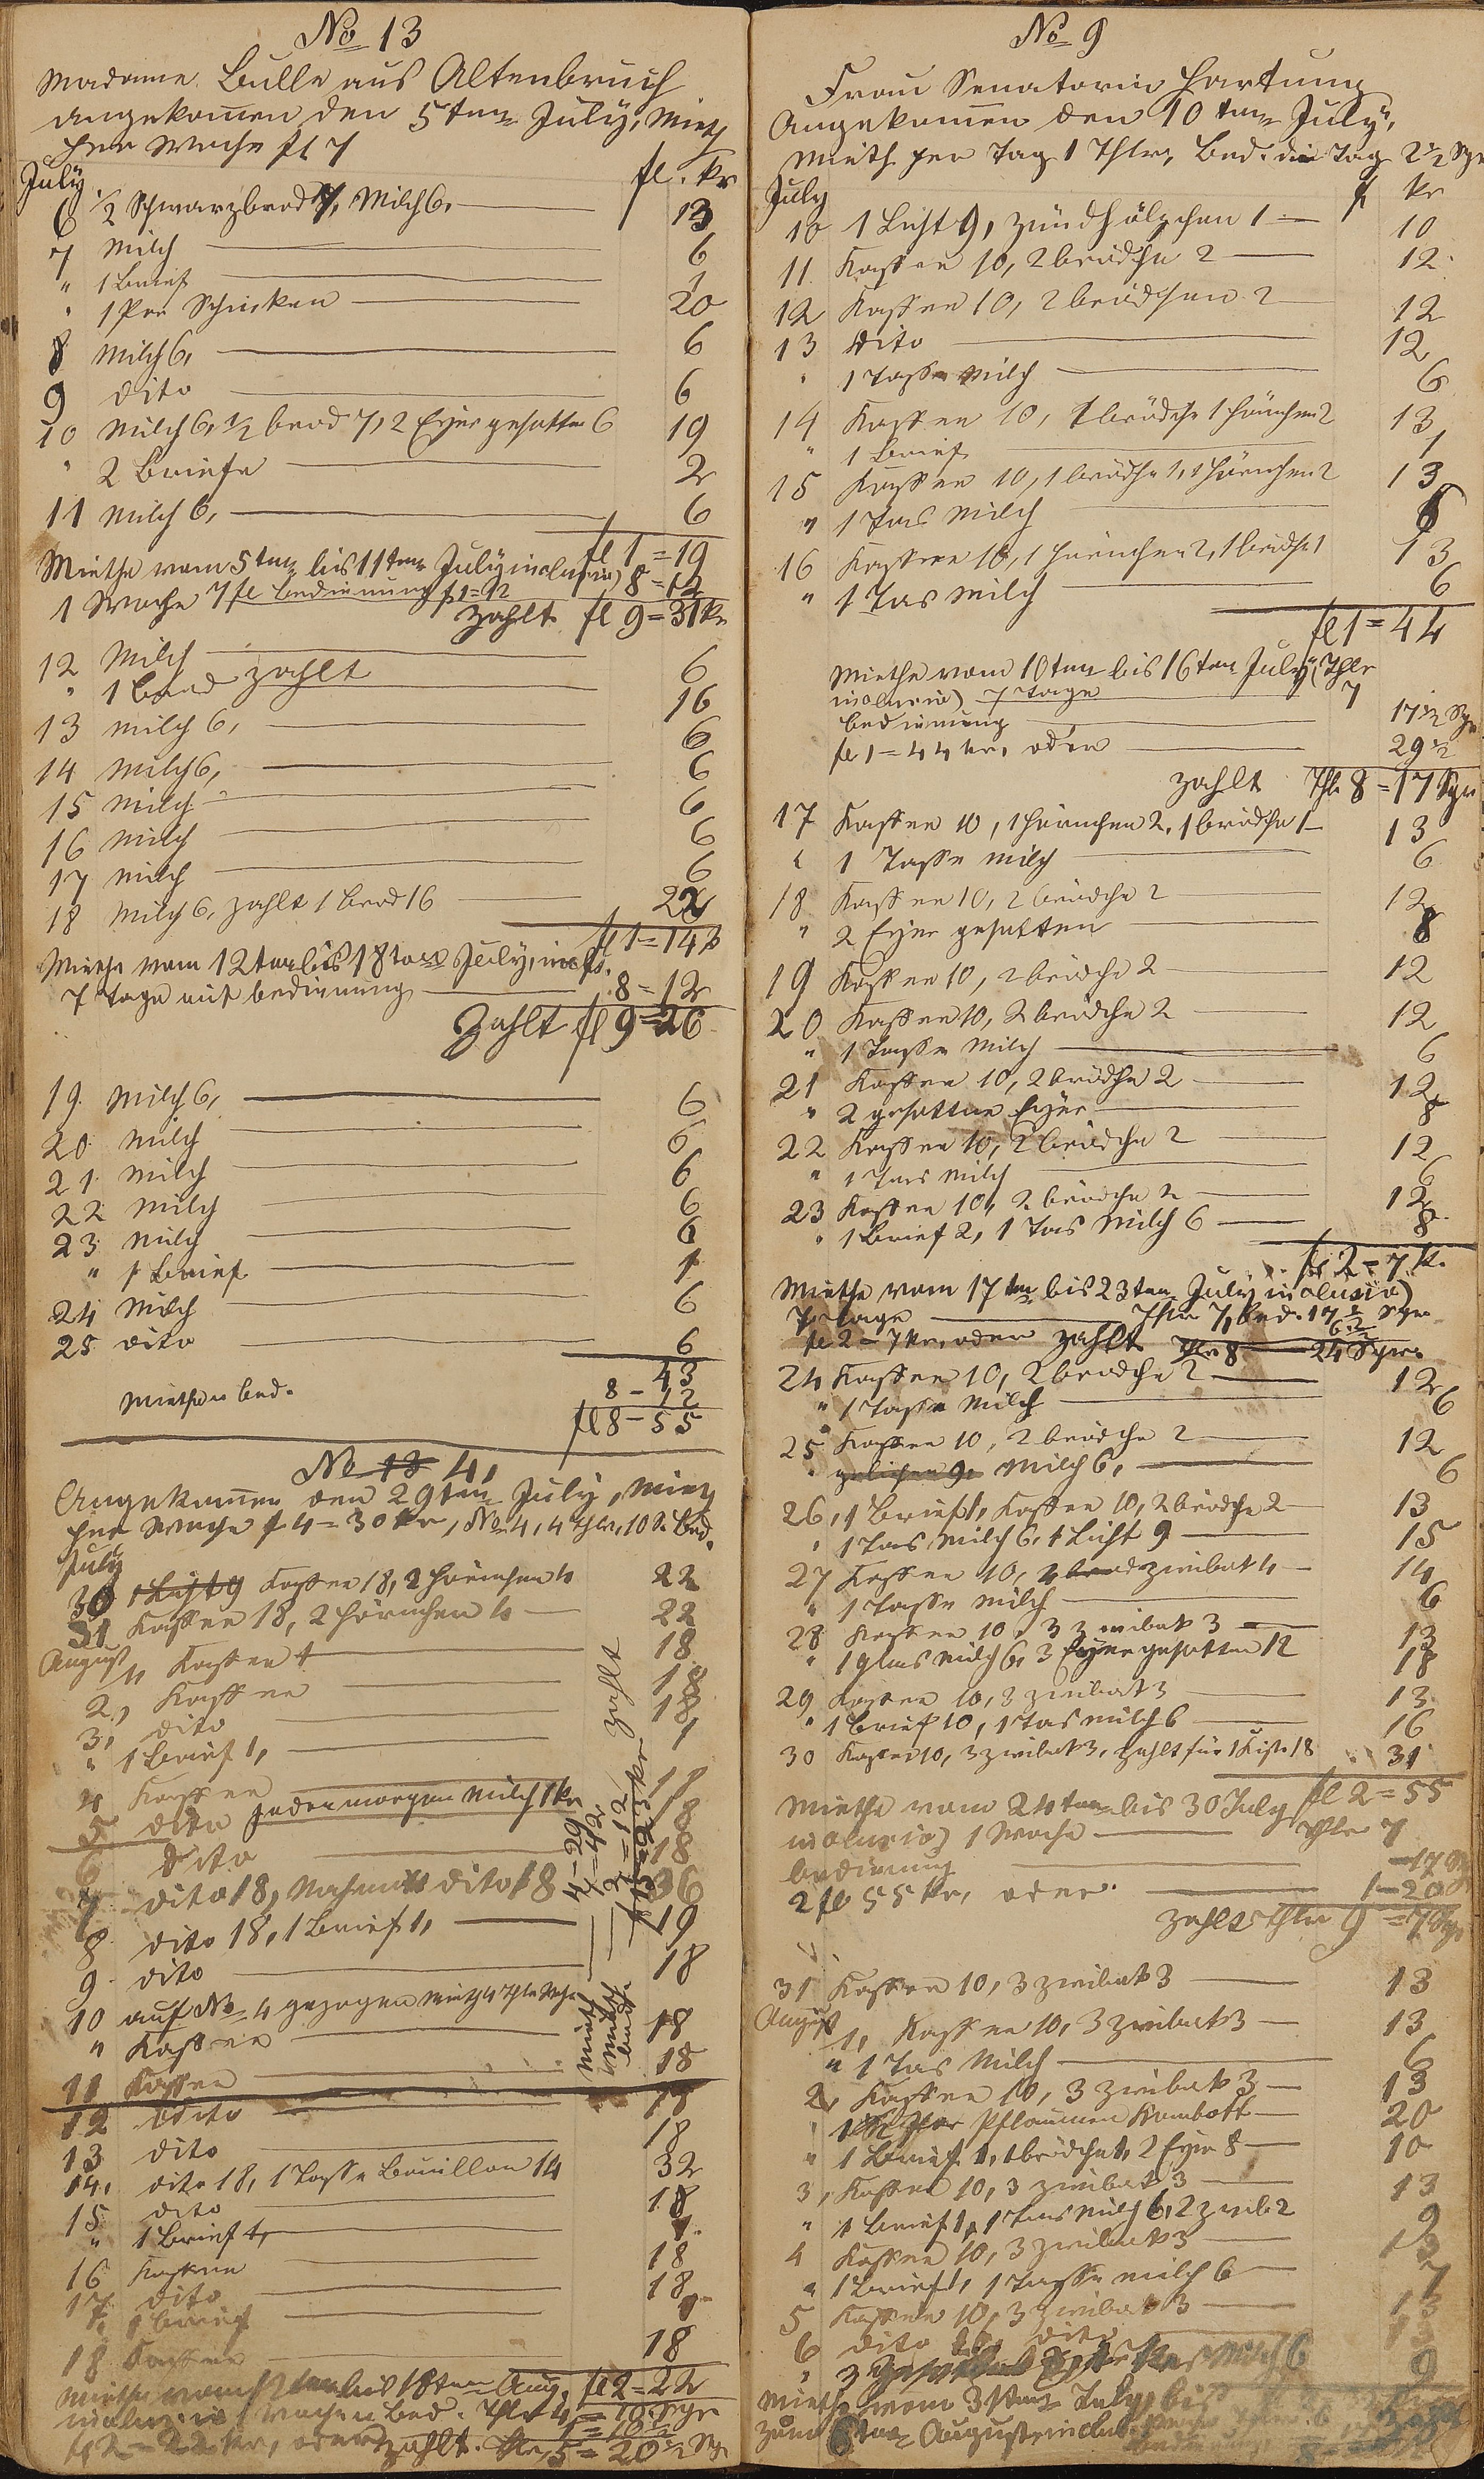 No 13
Madame Bulle aus Altenbruch
angekom̅en den 5ten July, Mieth
per Woche fl 7
July fl. kr
6 ½ Schwarzbrod 7, Milch 6, 13
7 Milch 6
" 1 Brief 1
" 1 Por Schinken 20
8 Milch 6, 6
9 dito 6
10 Milch 6, ½ brod 7, 2 Eyer gesotten 6 19
" 2 Briefe 2
11 Milch 6, 6
fl 1=19
Miethe vom 5ten bis 11ten July inclusive)
1 Woche 7 fl bedienung f 1=12 8=12
zahlt fl 9=31 kr
12 Milch 6
" 1 brod zahlt 16
13 Milch 6, 6
14 Milch 6, 6
15 Milch 6
16 Milch 6
17 Milch 6
18 Milch 6, zahlt 1 brod 16 22
fl 1=14
Miethe vom 12ten bis 18ten July, incls.
7 Tage mit bedienung 8=12
Zahlt fl 9=26
19 Milch 6, 6
20 Milch 6
21 Milch 6
22 Milch 6
23 Milch 6
" 1 Brief 1
24 Milch 6
25 dito 6
43
Miethe u bed. 8-12
fl 8-55
No 13 4,
Angekom̅en den 29ten July, Mieth
per Woche f 4=30 kr, No 4, 4 Thlr, 10 S. bed.
July
30 1 Licht 9 Kaffee 18, 2 Hörnchen 4 22
31 Kaffee 18, 2 Hörnchen 4 22
August 1, Kaffee 18
2, Kaffee 18
3, dito 18
" 1 Brief 1, 1
4 Kaffee 18
5 dito jeden morgen Milch 1 kr 18
6 dito 18
7 dito 18, Nachmitt dito 18 36
8 dito 18, 1 Brief 1, 19
9 dito 18
10 auf No 4 gezogen Mieth 4 Thlr
" Kaffee 18
11 Kaffee 18
Mieth 4-29
Mieth 4=42
bed. 2=12
zahlt
12 dito 18
13 dito 18
14, dito 18, 1 Tasse Bouillon 14 32
15 dito 18
" 1 Brief 1, 1
16 Kaffee 18
17 dito 18
" 1 Brief 1
18 Kaffee 18
fl 2=22
Miethe vom 12ten bis 18ten Aug.
inclusive) 1 Woche u bed. Thlr 4=10 Sgr
fl 2=22 kr, oder
zahlt Thlr 5=20½ Sgr
No 9
Frau Senatorin Hartung
Angekom̅en den 10ten July,
Mieth per Tag 1 Thlr, Bed. die Tag 2½ Sgr
July fl kr
10 1 Licht 9, Zündhölzchen 1 10
11 Kaffee 10, 2 brödche 2 12
12 Kaffee 10, 2 brödchen 2 12
13 dito 12
" 1 Tasse Milch 6
14 Kaffee 10, 1 brödche 1 Hörnchen 2 13
" 1 Brief 1
15 Kaffee 10, 1 brödche 1, 1 Hörnchen 2 13
" 1 Tas Milch 6
16 Kaffee 10, 1 Hörnchen 2, 1 brödch 1 13
" 1 Tas Milch 6
fl 1=44
Miethe vom 10ten bis 16ten July Thlr
inclusive) 7 Tage 7
bedienung 17½ Sgr
fl 1=44 kr, oder 29½
zahlt Thlr 8=17 Sgr
17 Kaffee 10, 1 Hörnchen 2, 1 brödche 1 13
" 1 Tasse Milch 6
18 Kaffee 10, 2 brödche 2 12
" 2 Eyer gesotten 8
19 Kaffee 10, 2 brödche 2 12
20 Kaffee 10, 2 brödche 2 12
" 1 Tasse Milch 6
21 Kaffee 10, 2 brödche 2 12
" 2 gesottne Eyer 8
22 Kaffee 10, 2 brödche 2 12
" 1 Tas Milch 6
23 Kaffee 10, 2 brödche 2 12
" 1 Brief 2, 1 Tas Milch 6 8
fl 2=7 k.
Miethe vom 17ten bis 23ten July inclusive)
7 Tage Thlr 7, bed. 17½ Sgr
fl 2=7 kr, oder 6½
zahlt Thlr 8 24 Sgr
24 Kaffee 10, 2 brodche 2 12
" 1 Tasse Milch 6
25 Kaffee 10, 2 brodche 2 12
" Milch 6, 6
26, 1 Brief 1, Kaffee 10, 2 brödche 2 13
" 1 Tas Milch 6, 1 Licht 9 15
27 Kaffee 10, zwibak 4 14
" 1 Tasse Milch 6
28 Kaffee 10, 3 zwibak 3 13
" 1 glas Milch 6, 3 Eyer gesotten 12 18
29 Kaffee 10, 3 zwibak 3 13
" 1 Brief 10, 1 Tas Milch 6 16
30 Kaffee 10, 3 zwibak 3, zahlt für 1 Kiste 18 31
Miethe vom 24ten bis 30 July fl 2=55
inclusive) 1 Woche Thlr 7
bedienung 17 Sg
2 fl 55 kr, oder 1-20
zahlt Thlr 9=7 Sgr
31 Kaffee 10, 3 zwibak 3 13
August 1, Kaffee 10, 3 zwibak 3 13
" 1 Tas Milch 6
2, Kaffee 10, 3 zwibak 3 13
" Pflaumen Kombott 20
" 1 Brief 1, 1 brödche 1, 2 Eyer 8 10
3, Kaffee 10, 3 zwibak 3 13
" 1 Brief 1, 1 Tas Milch 6, 2 zwib 2 9
4 Kaffee 10, 3 zwibak 3 13
" 1 Brief 1, 1 Tasse Milch 6 7
5 Kaffee 10, 3 zwibak 3 13
6 dito dito 13
" 3 Tas Milch 6 9
Miethe vom 31ten July, bis
zum 6ten August inclus.